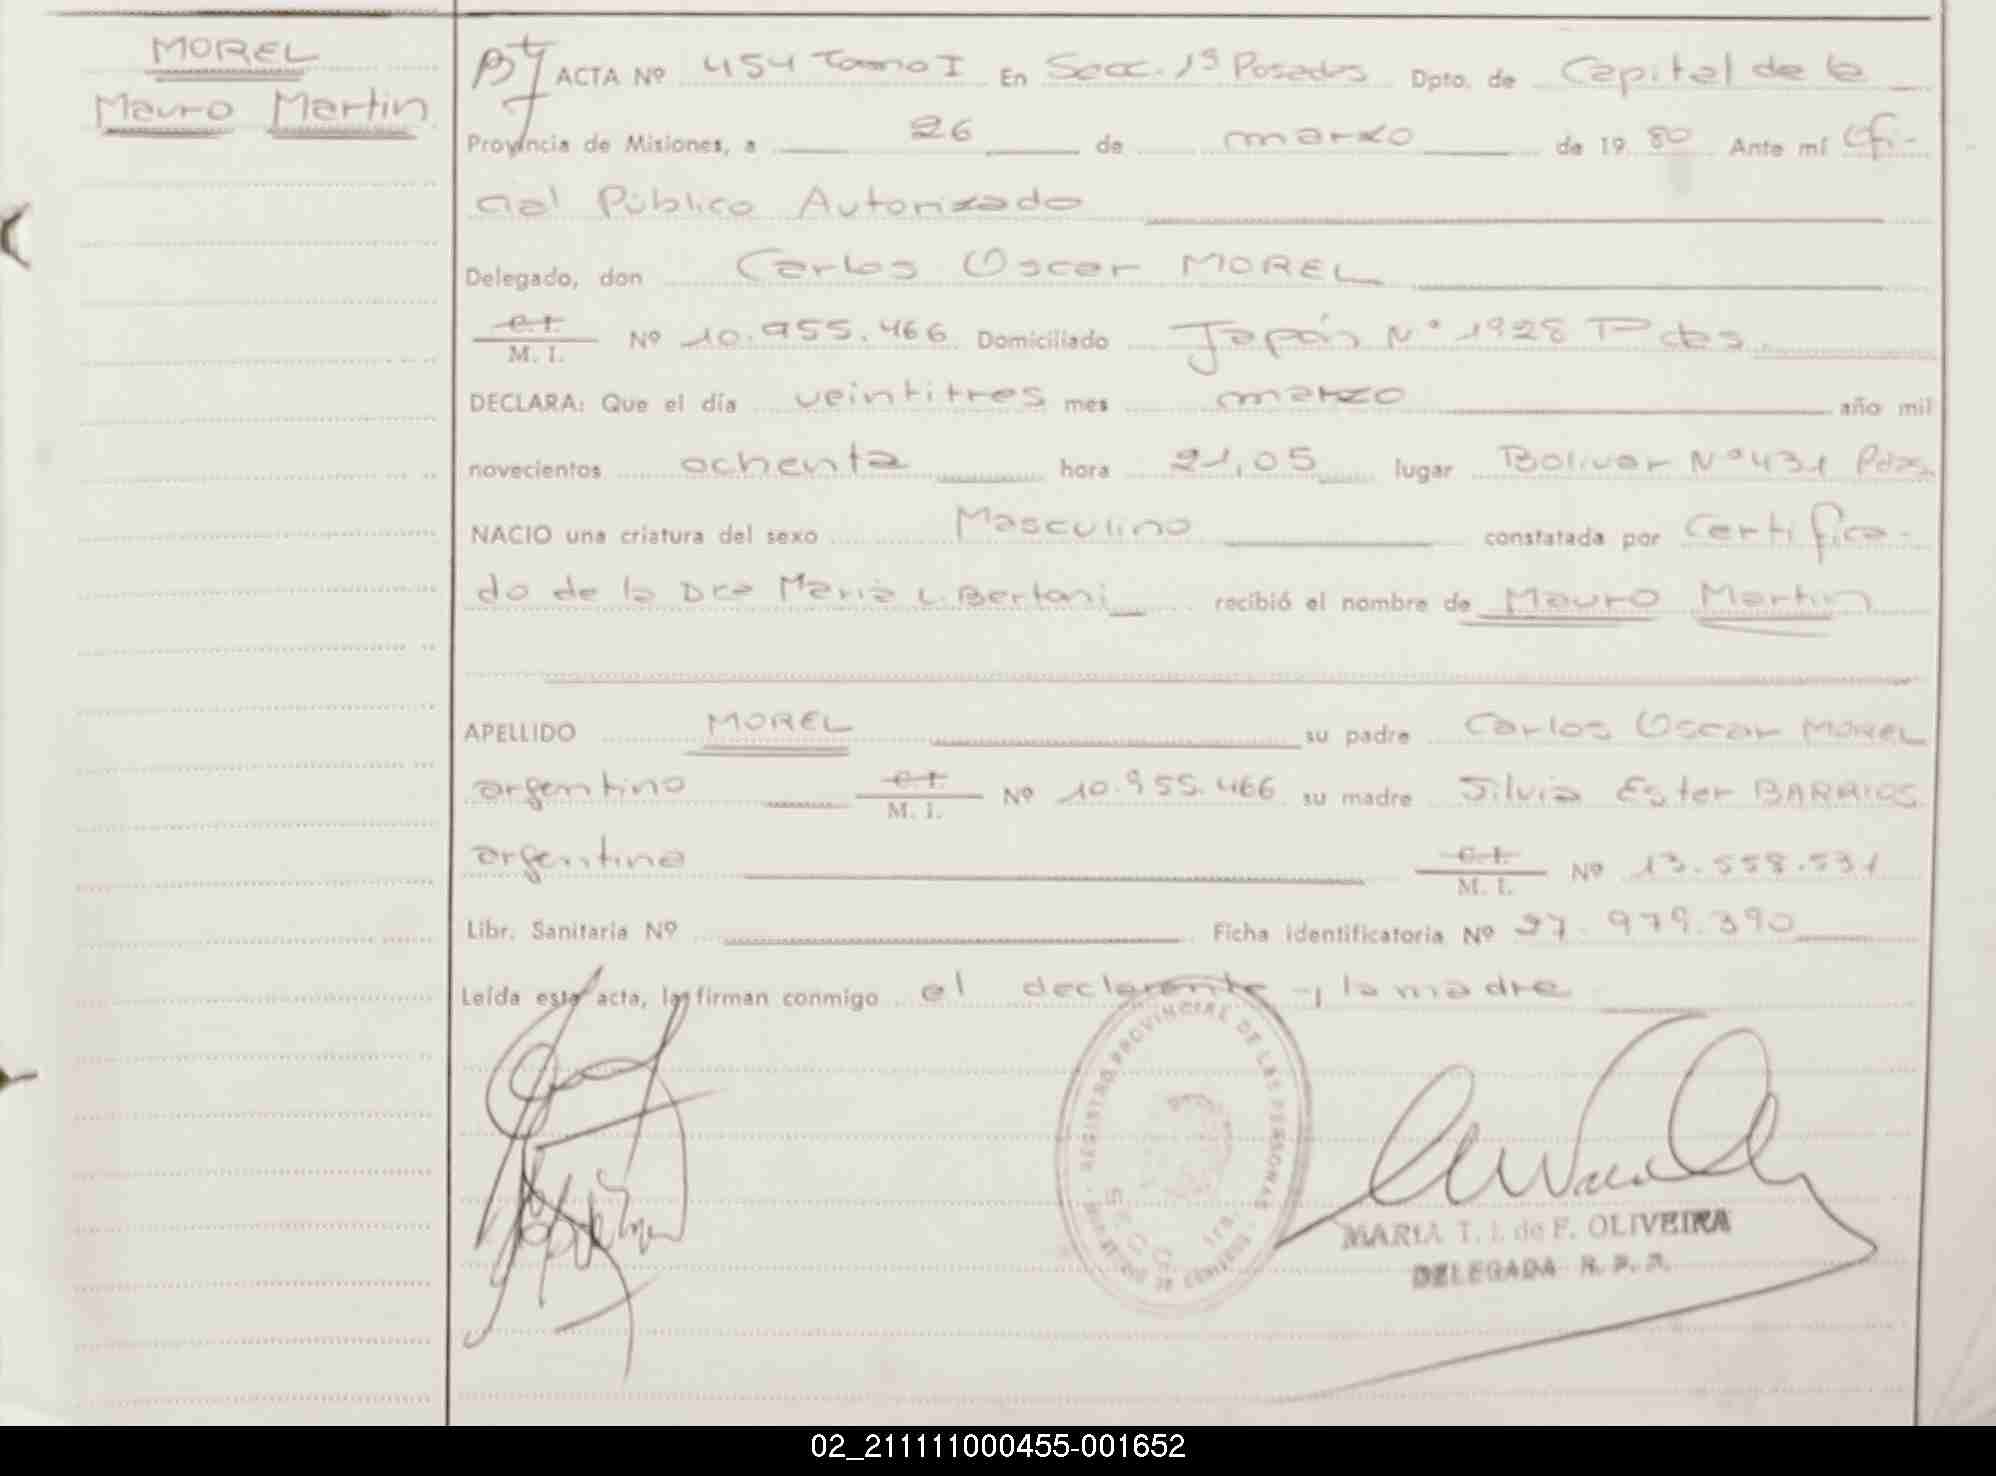 MOREL
Mauro Martin
ACTA Nº 454 Tomo I En Secc. 1ª Posadas Dpto. de Capital de la
Provincia de Misiones, a 26 de marzo de 19 80 Ante mí Ofi-
cial Público Autorizado
Delegado, don Carlos Oscar MOREL
C. I.
M. I. Nº 10.955.466 Domiciliado Japón Nº 1928 Pdas.
DECLARA: Que el día veintitres mes marzo año mil
novecientos ochenta hora 21,05 lugar Bolivar Nº 431 Pdas.
NACIO una criatura del sexo Masculino constatada por Certifica-
do de la Dra Maria L. Bertoni recibió el nombre de Mauro Martin
APELLIDO MOREL su padre Carlos Oscar MOREL
argentino C. I.
M. I. Nº 10.955.466 su madre Silvia Ester BARRIOS
argentina C. I.
M. I. Nº 13.558.531
Libr. Sanitaria Nº Ficha identificatoria Nº 27.979.390
Leída esta acta, la firman conmigo el declarante y la madre
REGISTRO PROVINCIAL DE LAS PERSONAS
SECC. 1ra.
MARIA T. I. de F. OLIVEIRA
DELEGADA R. P. P.
02_211111000455-001652